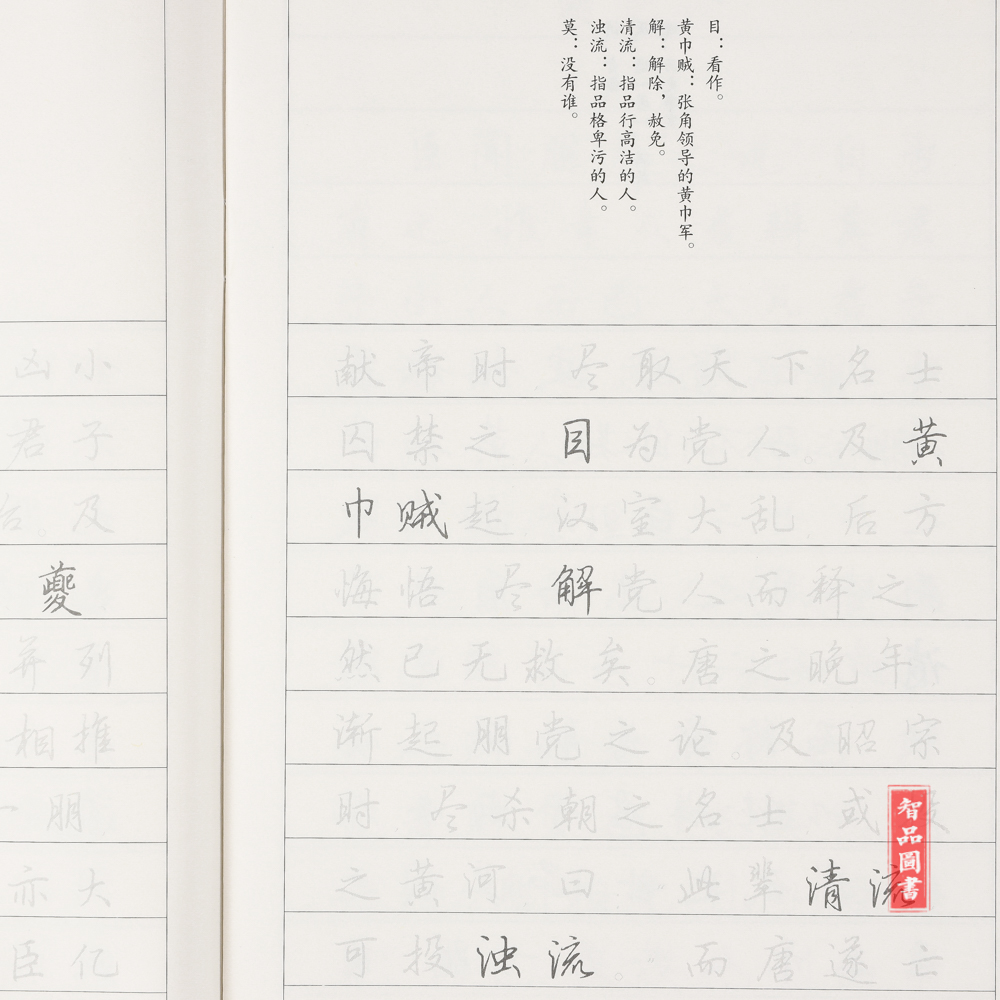 目：看作。
黄巾贼：张角领导的黄巾军。
解：解除，赦免。
清流：指品行高洁的人。
浊流：指品格卑污的人。
莫：没有谁。
凶小
君子
及
夔
并列
相推
一朋
亦大
臣亿
献帝时，尽取天下名士
囚禁之，目为党人。及黄
巾贼起，汉室大乱，后方
悔悟，尽解党人而释之，
然已无救矣。唐之晚年，
渐起朋党之论。及昭宗
时，尽杀朝之名士，或
之黄河，曰：“此辈清流
可投浊流。”而唐遂亡
智品圖書